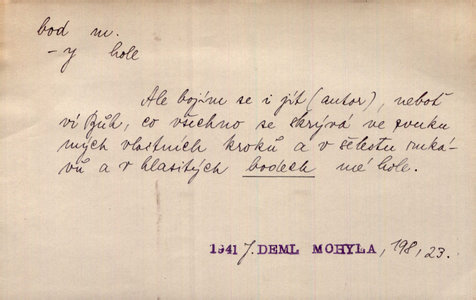 bod m.
-y hole
Ale bojím se i jít (autor), neboť
ví Bůh, co všechno se skrývá ve zvuku
mých vlastních kroků a v šelestu ruká-
vů a v hlasitých bodech mé hole.
1941 J. DEML MOHYLA, 198, 23.